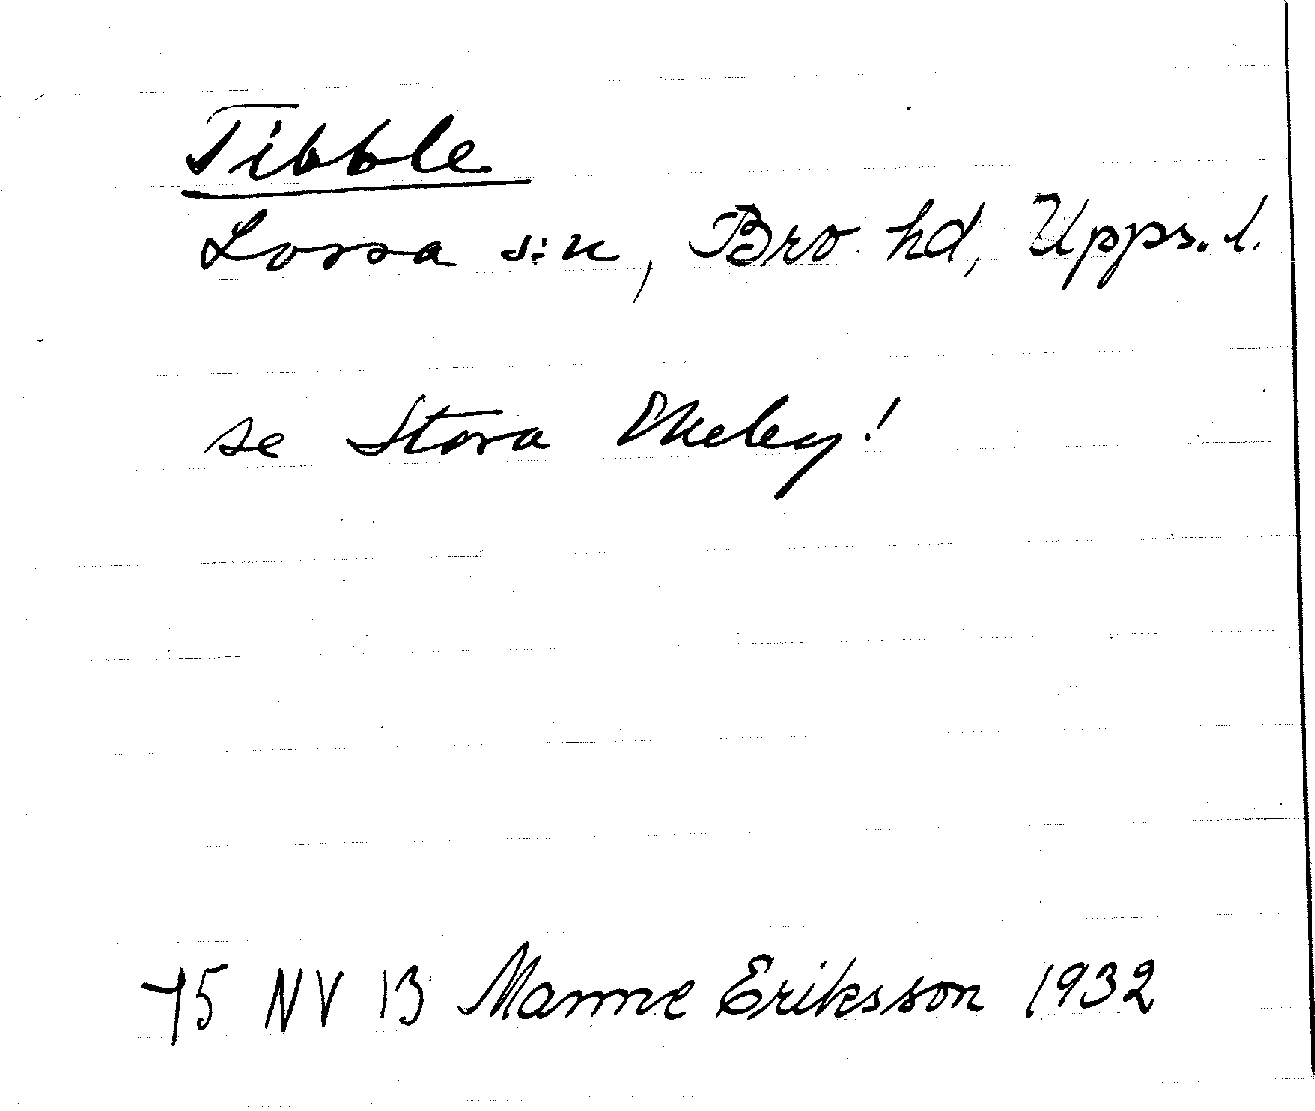 Tibble
Lossa s:n, Bro hd, Upps. l.
se Stora Ekeby!
75 NV 13 Manne Eriksson 1932